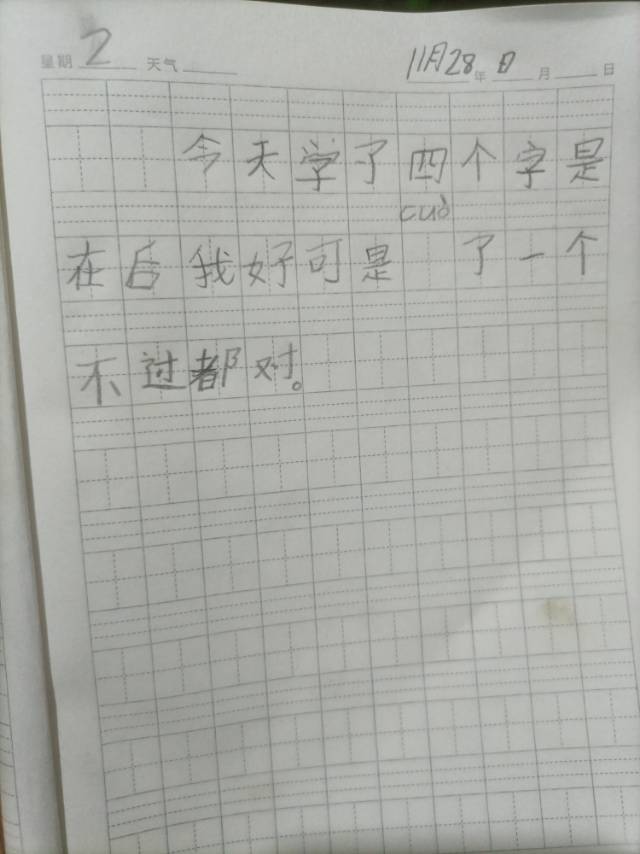 星期 2 天气 11月28年 日 月 日
今天学了四个字是
cuò
在后我好可是 了一个
不过都对。